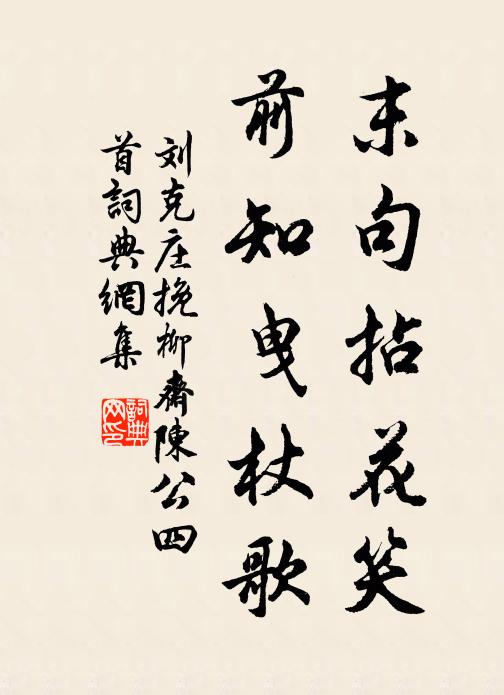 末句拈花笑
前知曳杖歌
刘克庄挽柳齋陳公四
首詞典網集
詞典
网印